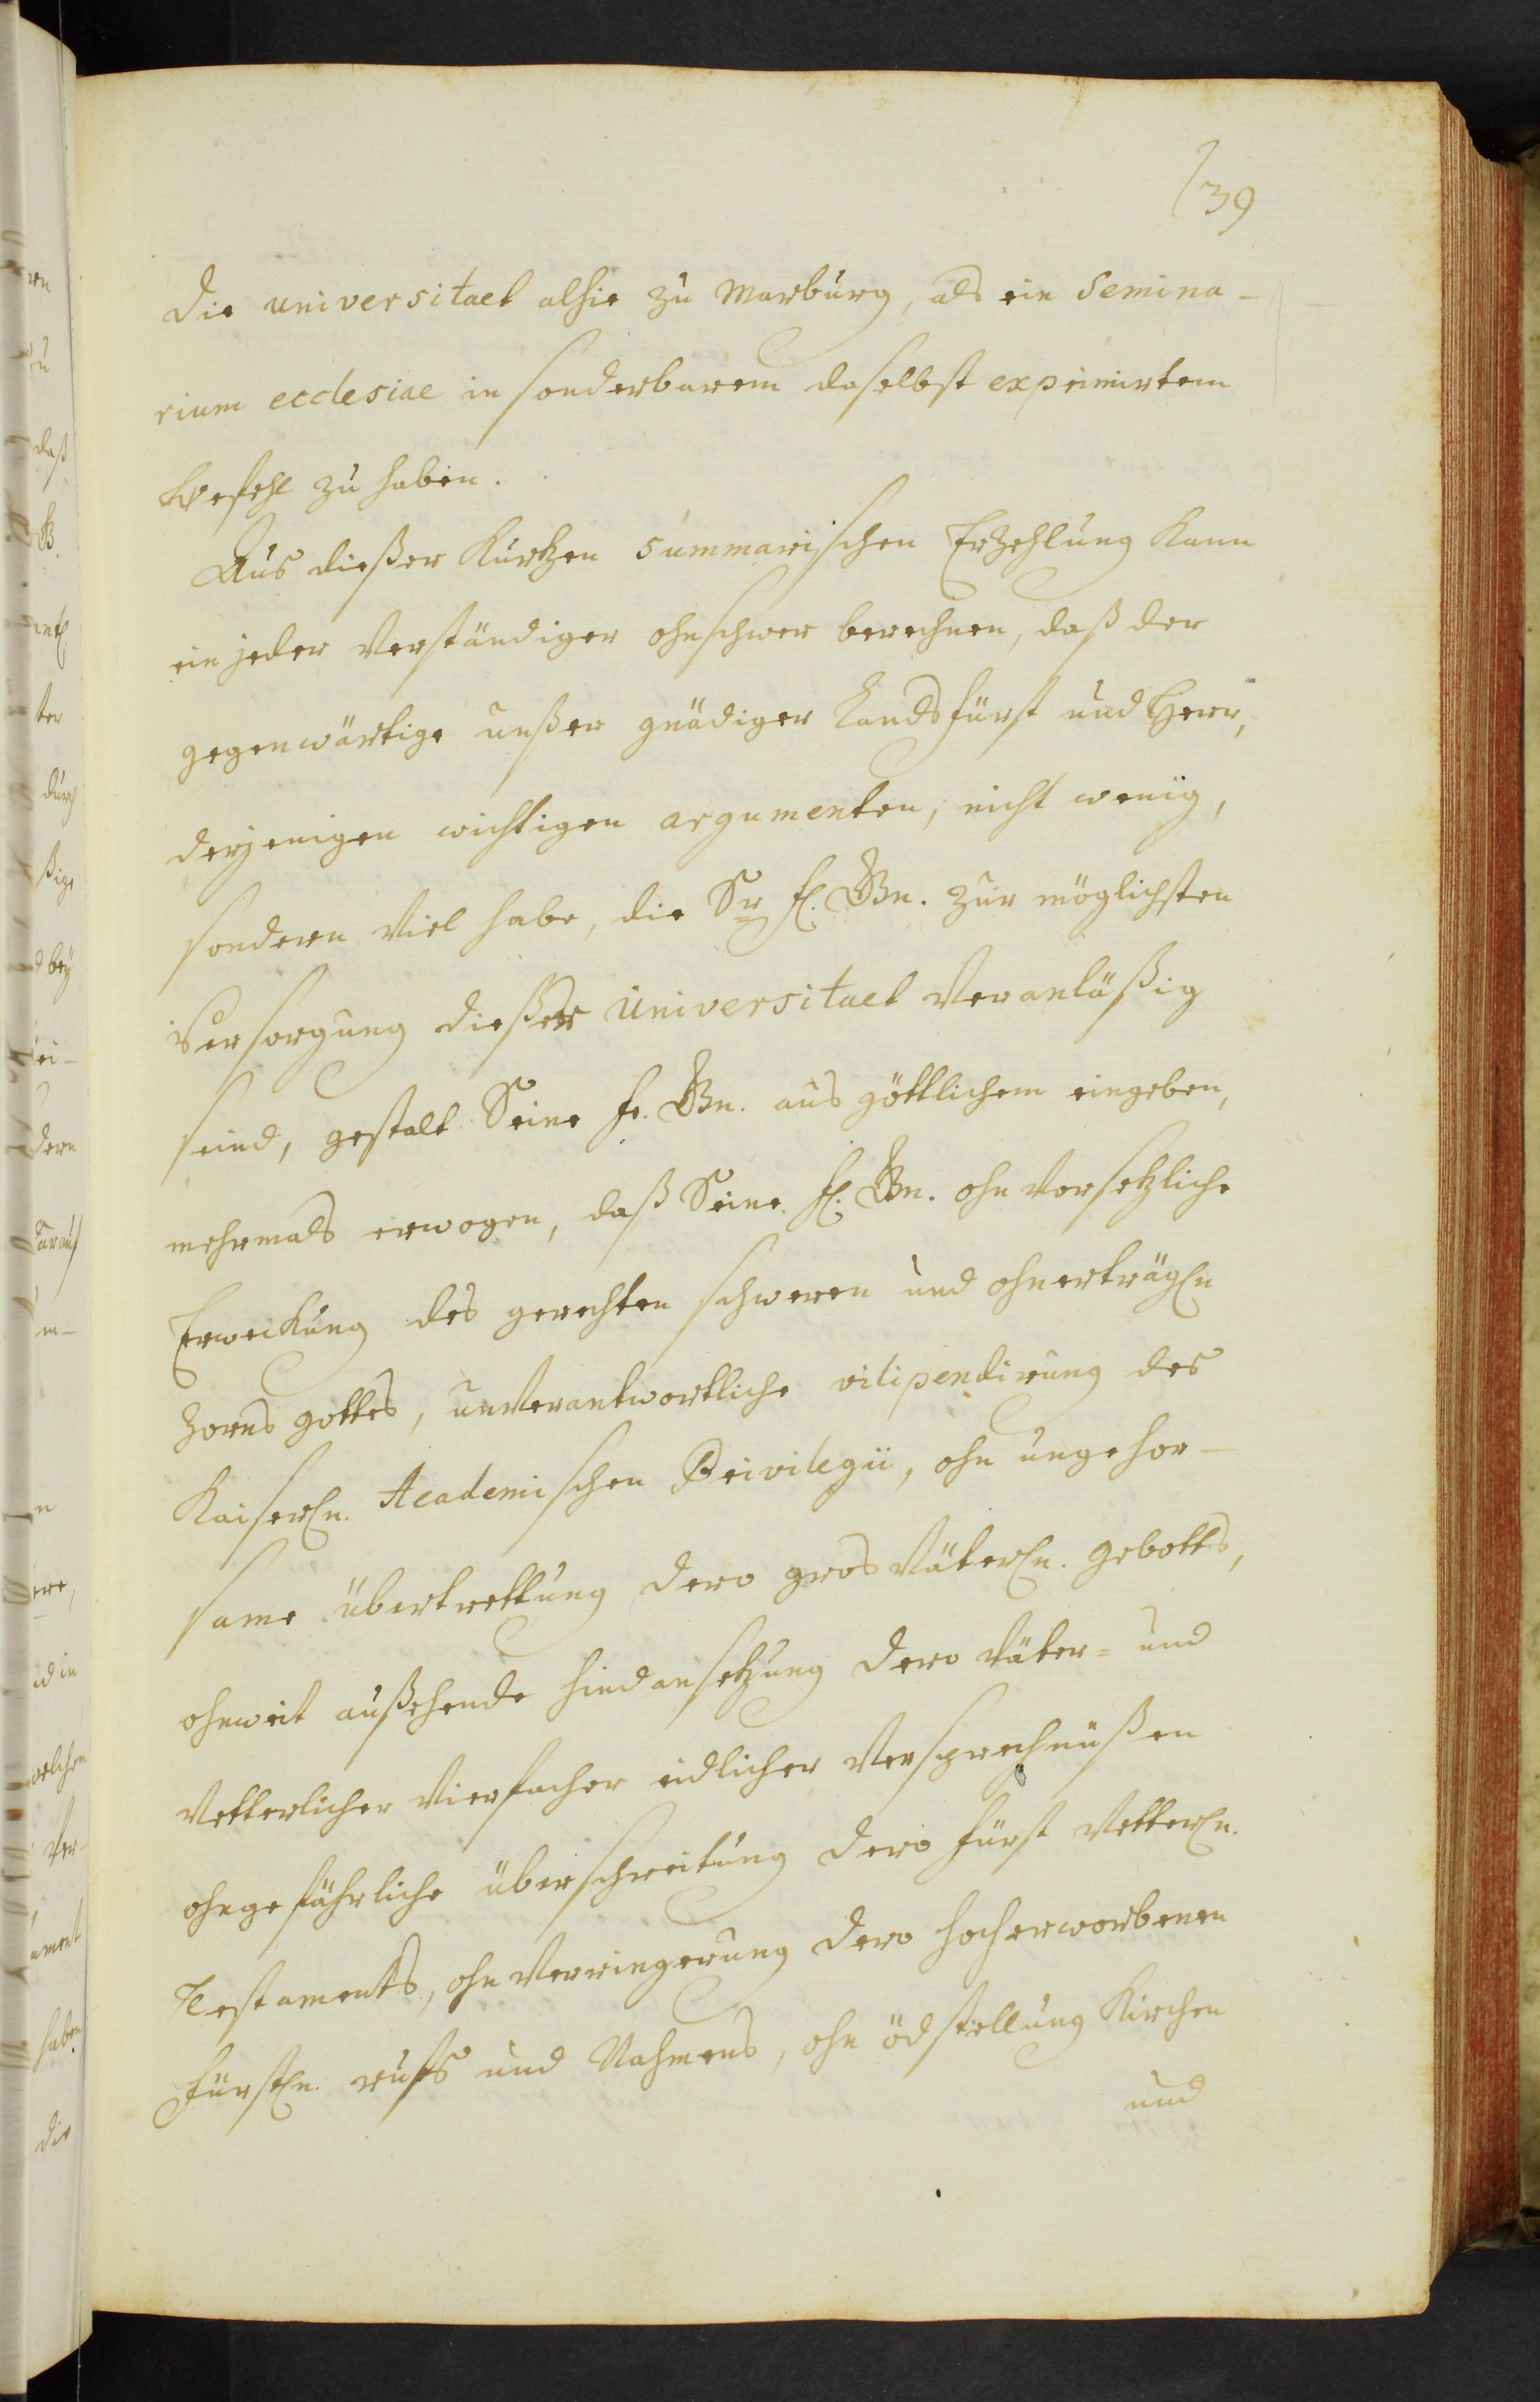 39
die universitaet alhie zu Marburg, als ein Semina-
rium ecclesiae in sonderbarem daselbst exprimirtem
befehl zu haben.
Aus dießer kurtzen summarischen Erzehlung kann
ein jeder verständiger ohnschwer berechnen, daß der
gegenwärtige unßer gnädiger Landsfürst und Herr,
derjenigen wichtigen argumenten, nicht wenig,
sondern viel habe, die Sr. fl. Gn. zur möglichsten
Versorgung dießer Universitaet veranläßig
seind, gestalt Seine fr. Gn. aus göttlichem eingeben,
mehrmals erwogen, daß Seine fl. Gn. ohn vorsetzliche
Erweckung des gerechten schweren und ohnerträgln
Zorns gottes, unverantwortliche vilipendirung des
Kaiserln. Academischen Privilegii, ohn ungehor-
same übertrettung dero grosväterln. gebotts,
ohnweit außehende hindansetzung dero väter= und
vetterlicher vierfacher eidlicher versprechnüßen
ohngefährliche überschreitung dero fürst vetterln.
Testaments, ohn verringerung dero hocherworbenen
fürstln. rufs und Nahmens, ohn ödstellung Kirchen
und
ren
daß
B.
ter
durch
ßige
d bey
ei-
dern
darauf
m-
n
ere,
d in
welchen
ver-
ament
haben
die